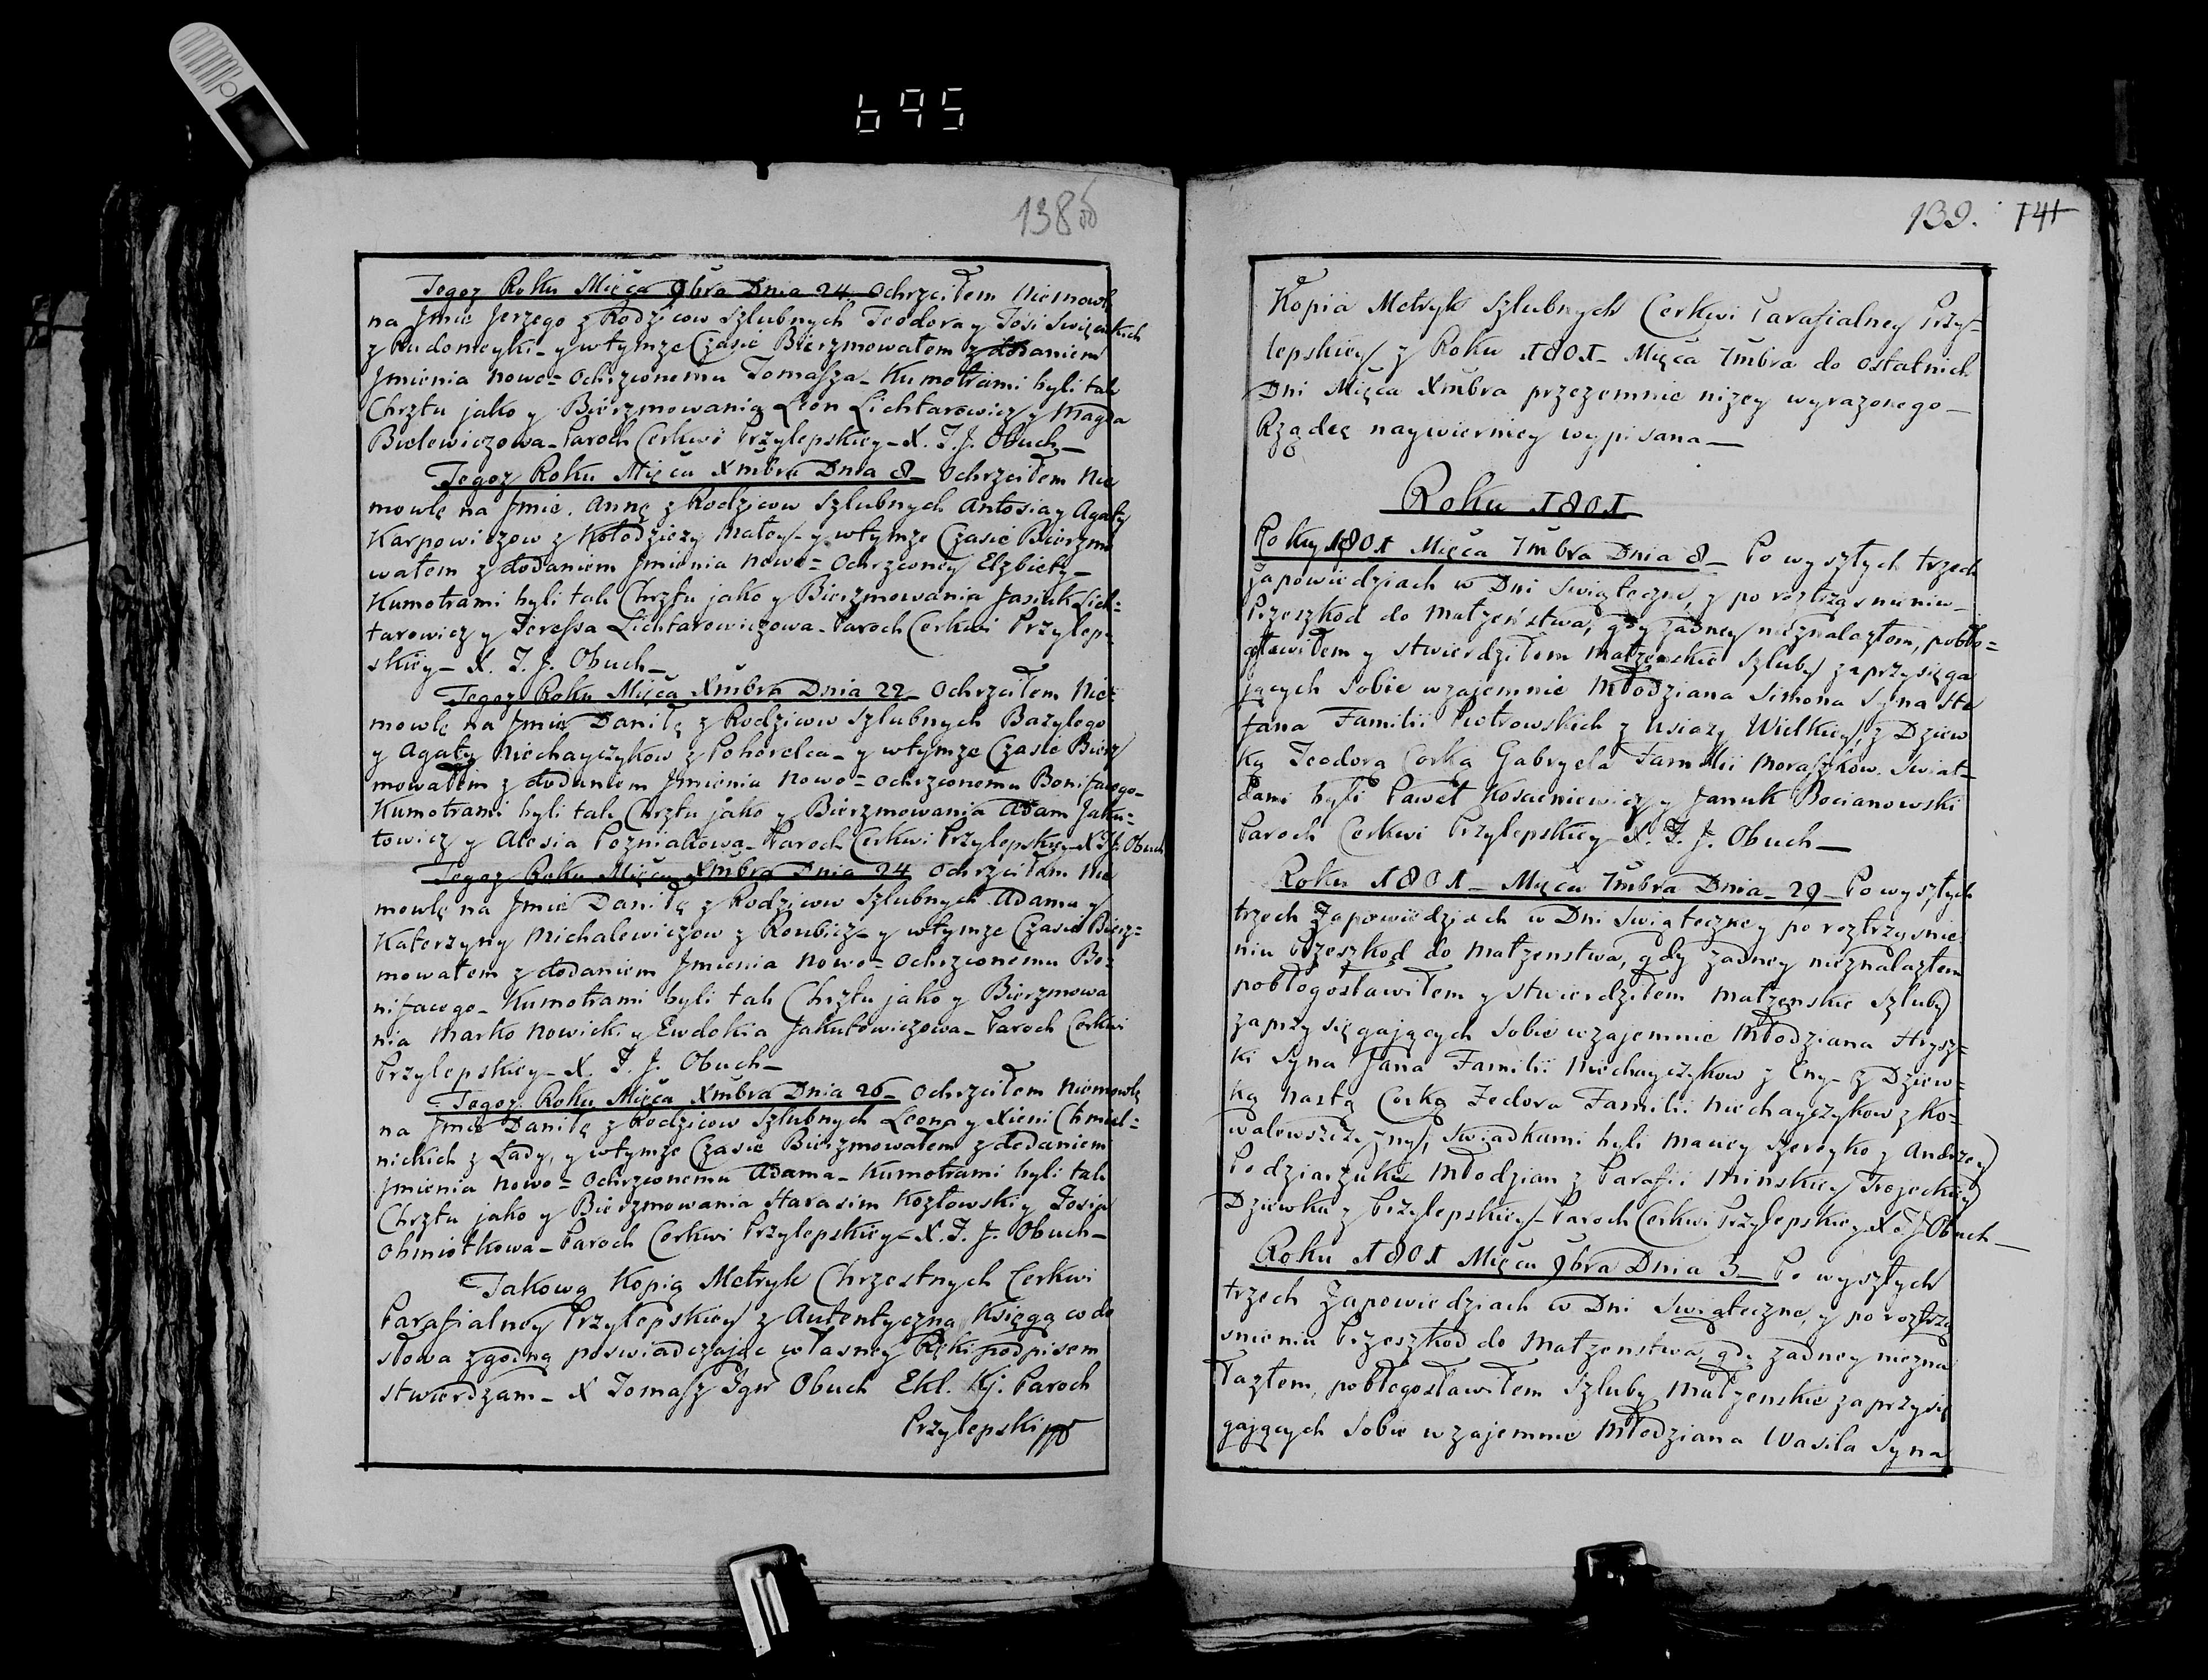 695
138об
Tegoż Roku Mięca 9bra Dnia 24 ochrzciłem Niemowlę
na Jmie Jerzego z Rodzicow Szlubnych Teodora y Zosi
z Rudomeyki - y wtymże Czasie Bierzmowałem z dodaniem
Jmienia nowo=ochrzconemu Tomasza - Kumotrami byli tak
Chrztu jako y Bierzmowania Leon Lichtarowicz y Magda
Bielewiczowa - Paroch Cerkwi Przylepskiey - X. T. J. Obuch -
Tegoż Roku Mięca Xmbra Dnia 8 - ochrzciłem Nie
mowlę na Jmie Annę z Rodzicow Szlubnych Antosia y Agaty
Karpowiczow z Kołodziezy Małey - y wtymże Czasie Bierzmo
wałem z dodaniem Jmienia nowo=ochrzconey Elzbiety -
Kumotrami byli tak Chrztu jako y Bierzmowania Jasiuk Lich=
tarowicz y Teressa Lichtarowiczowa - Paroch Cerkwi Przylep=
skiey - X. T. J. Obuch -
Tegoż Roku Mięca Xmbra Dnia 22 - ochrzciłem Nie=
mowlę na Jmie Daniłę z Rodzicow Szlubnych Bazylego
y Agaty Niechayczykow z Pohorelca - y wtymże Czasie Bierz
mowałem z dodaniem Jmienia nowo=ochrzconemu Bonifacego -
Kumotrami byli tak Chrztu jako y Bierzmowania Adam Jaku=
towicz y Alesia Pozniakowa - Paroch Cerkwi Przylepskiey - X T J. Obuch
Tegoż Roku Mięca Xmbra Dnia 24 ochrzciłem Nie
mowlę na Jmie Daniłę z Rodzicow Szlubnych Adama y
Katerzyny Michalewiczow z Roubicz - y wtymże Czasie Bierz=
mowałem z dodaniem Jmienia nowo=ochrzconemu Bo=
nifacego - Kumotrami byli tak Chrztu jako y Bierzmowa
nia Marko Nowicki y Ewdokia Jakutowiczowa - Paroch Cerkwi
Przylepskiey - X. T. J. Obuch -
Tegoż Roku Mięca Xmbra Dnia 26 - ochrzciłem Niemowlę
na Jmie Daniłę z Rodzicow Szlubnych Leona y Xieni Chmiel=
nickich z Łady, y wtymże Czasie Bierzmowałem z dodaniem
Jmienia nowo=ochrzconemu Adama - Kumotrami byli tak
Chrztu jako y Bierzmowania Harasim Kozłowski y Zosia
Obmiotkowa - Paroch Cerkwi Przylepskiey - X. T. J. Obuch -
Takową Kopią Metryk Chrzestnych Cerkwi
Parafialney Przylepskiey z Autentyczną Księgą co do
słowa zgodną poswiadczając własney Ręki podpisem
stwierdzam - X Tomasz Jgn Obuch Ekl. Kj. Paroch
Przylepski
139. 141
Kopia Metryk Szlubnych Cerkwi Parafialney Przy=
lepskiey z Roku 1801 - Mięca 7mbra do ostatnich
Dni Mięca Xmbra przezemnie niżey wyrażonego -
Rządcę naywierniey wypisana -
Roku 1801
Roku 1801 Mięca 7mbra Dnia 8 - Po wyszłych trzech
Zapowiedziach w Dni Swiąteczne, y po roztrząsnieniu -
Przeszkod do Małżeństwa, gdy żadney nieznalazłem, pobło=
gławiłem y stwierdziłem Małżenskie Szluby zaprzysięga
jących sobie wzajemnie Młodziana Simona Syna Ste
fana Familii Piotrowskich z Usiaży Wielkiey, z Dziew
ką Teodorą Corką Gabryela Familii Moraszkow. Swiad=
kami byli Paweł Kosaeniewicz y Januk Bocianowski
Paroch Cerkwi Przylepskiey - X. T. J. Obuch -
Roku 1801 - Mięca 7mbra Dnia - 29 - Po wyszłych
trzech Zapowiedziach w Dni Swiąteczne y po roztrząsnie
niu Przeszkod do Małżenstwa, gdy żadney nieznalazłem
pobłogosławiłem y stwierdziłem Małżenskie Szluby
zaprzysięgających sobie wzajemnie Młodziana Hrysz=
ki Syna Jana Familii Niechayczykow z Cny - z Dziew=
ką Nastą Corką Fedora Familii Niechayczykow z Ko=
walewszczyzny, Swiadkami byli Maciey Szereyko y Andrzey
Podziarzuki Młodzian z Parafii Minskiey Trojeckiey
Dziewka z Przylepskiey - Paroch Cerkwi Przylepskiey X T J Obuch -
Roku 1801 Mięca 9bra Dnia 3 - Po wyszłych
trzech Zapowiedziach w Dni Swiąteczne, y po roztrzą
snieniu Przeszkod do Małżenstwa, gdy żadney niezna
lazłem, pobłogosławiłem Szluby Małżenskie zaprzysię
gających sobie wzajemnie Młodziana Wasila Syna